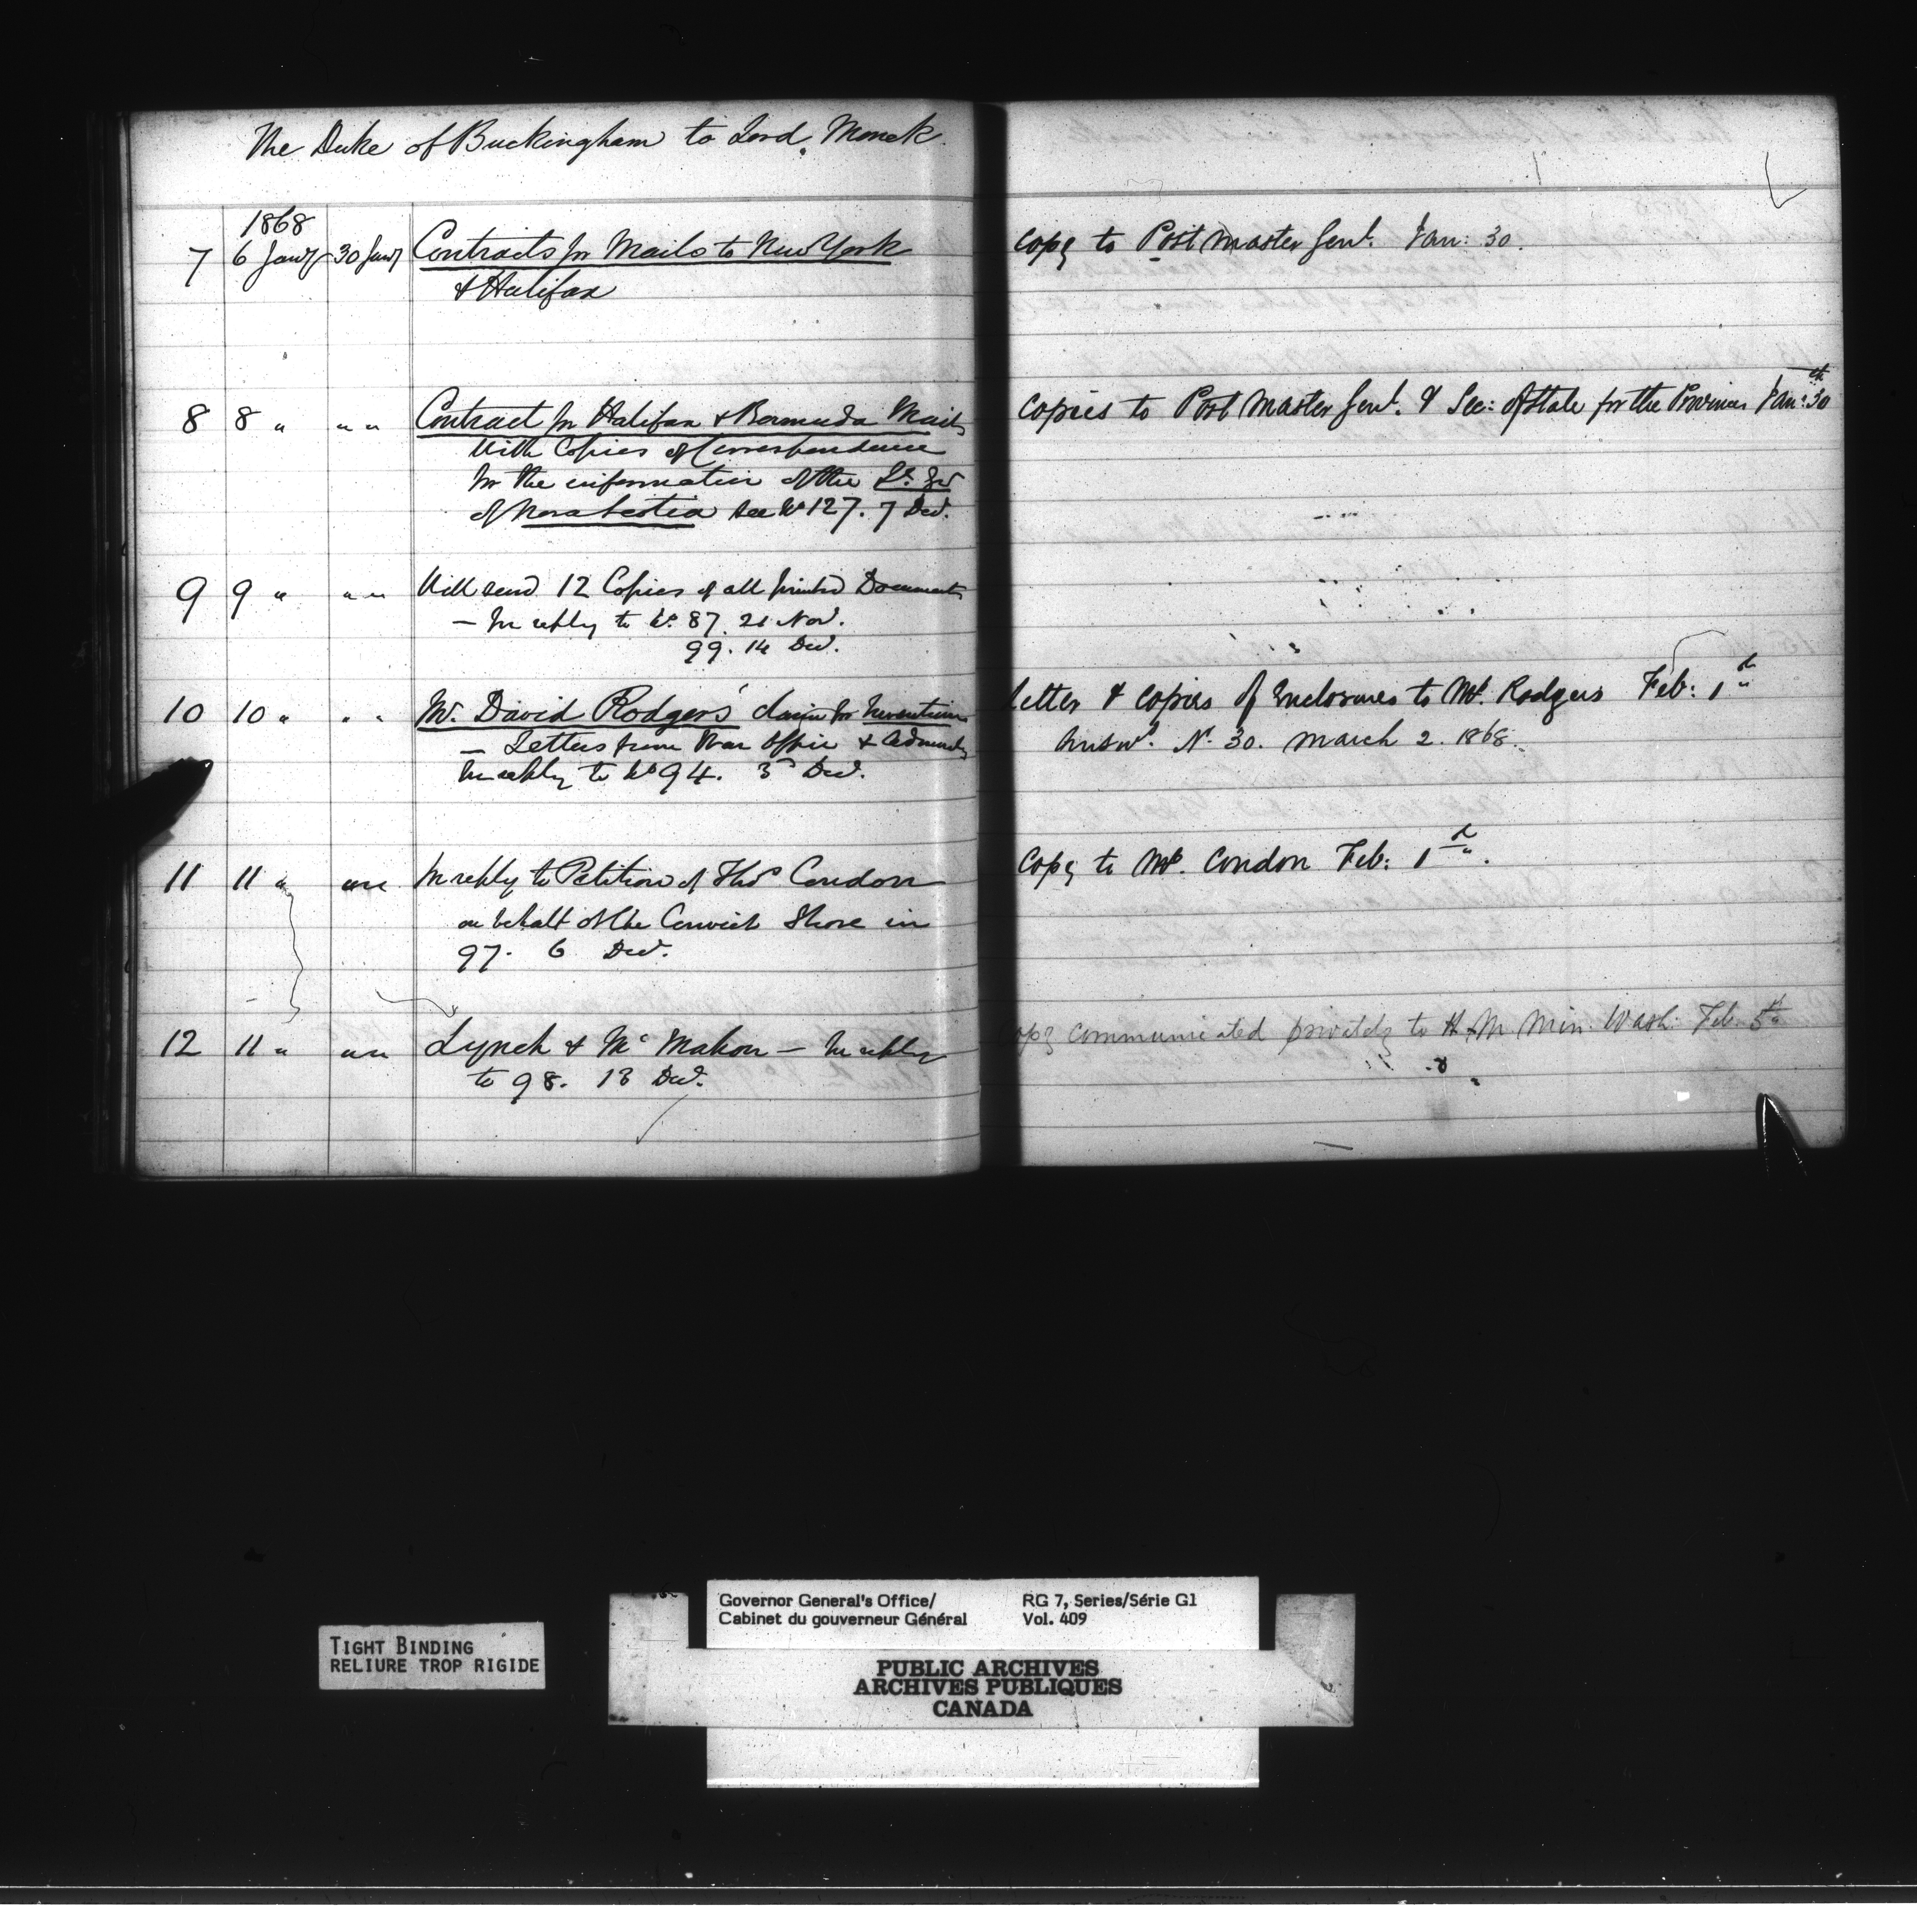 The Duke of Buckingham to Lord Monck.
1868
7 6 Jany 30 Jany Contracts for Mails to New York
& Halifax
Copy to Post Master Genl. Jan: 30.
8 8 " " " Contract for Halifax & Bermuda Mails
With Copies of Correspondence
for the information of the Lt. Gov
of Nova Scotia see No 127. 7 Decr.
Copies to Post Master Genl. & Sec: of State for the Provinces Jan: 30th
9 9 " " " Will send 12 Copies of all printed Documents
— In reply to No. 87. 21 Novr.
99. 14 Decr.
10 10 " " " Mr. David Rodgers' claim for Inventions
— Letters from War Office & Admiralty
In reply to No 94. 3d Decr.
Letter & copies of Enclosures to Mr. Rodgers Feb: 1st
Answd. N. 30. March 2. 1868.
11 11 " " " In reply to Petition of Thos Condon
on behalf of the Convict Shore in
97. 6 Decr.
Copy to Mr. Condon Feb: 1st.
12 11 " " " Lynch & Mc Mahon — In reply
to 98. 13 Decr.
Copy communicated privately to H. M. Min. Wash: Feb. 5th
Governor General's Office/
Cabinet du gouverneur Général
RG 7, Series/Série G1
Vol. 409
TIGHT BINDING
RELIURE TROP RIGIDE
PUBLIC ARCHIVES
ARCHIVES PUBLIQUES
CANADA